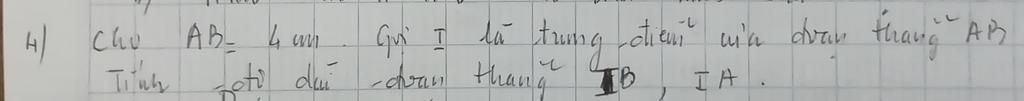 4) Cho AB = 4 cm. Gọi I là trung điểm của đoạn thẳng AB
Tính độ dài đoạn thẳng IB, IA.